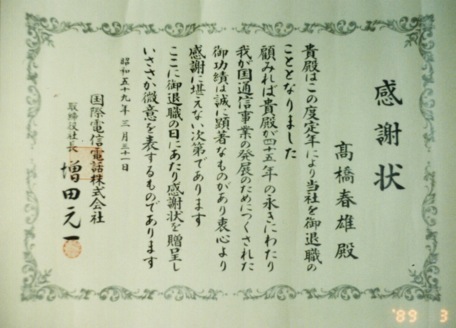 感謝状
髙橋春雄殿
貴殿はこの度定年により当社を御退職の
こととなりました
顧みれば貴殿が四十五年の永きにわたり
我が国通信事業の発展のためにつくされた
御功績は誠に顕著なものがあり衷心より
感謝に堪えない次第であります
ここに御退職の日にあたり感謝状を贈呈し
いささか微意を表するものであります
昭和五十九年三月三十一日
国際電信電話株式会社
取締役社長 増田元一
'89 3